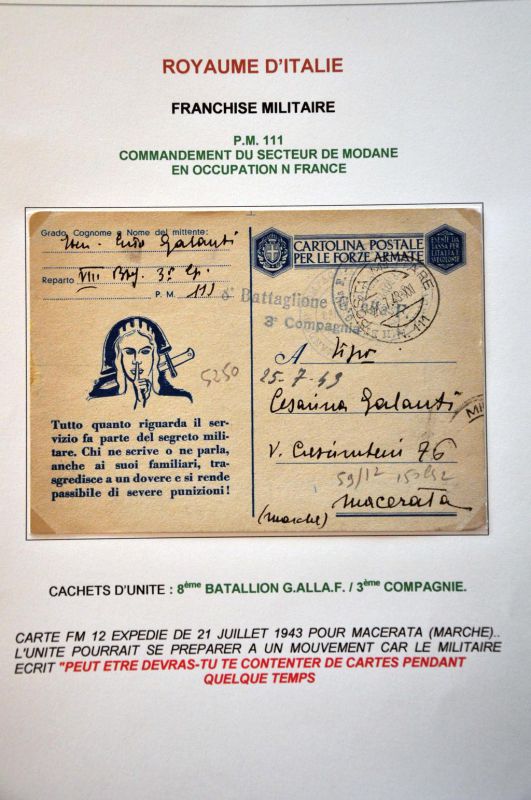 ROYAUME D'ITALIE
FRANCHISE MILITAIRE
P.M. 111
COMMANDEMENT DU SECTEUR DE MODANE
EN OCCUPATION N FRANCE
Grado, Cognome e Nome del mittente:
Galanti
Reparto VIII Btg. 3ª Cp.
P. M. 111
CARTOLINA POSTALE
PER LE FORZE ARMATE
8° Battaglione G. alla F.
3ª Compagnia
N. 111
5250
A
25-7-43
Cesarina Galanti
V. Crescimbeni 76
59/12
Macerata
(Marche)
Tutto quanto riguarda il ser-
vizio fa parte del segreto mili-
tare. Chi ne scrive o ne parla,
anche ai suoi familiari, tra-
sgredisce a un dovere e si rende
passibile di severe punizioni!
CACHETS D'UNITE : 8ème BATALLION G.ALLA.F. / 3ème COMPAGNIE.
CARTE FM 12 EXPEDIE DE 21 JUILLET 1943 POUR MACERATA (MARCHE)..
L'UNITE POURRAIT SE PREPARER A UN MOUVEMENT CAR LE MILITAIRE
ECRIT "PEUT ETRE DEVRAS-TU TE CONTENTER DE CARTES PENDANT
QUELQUE TEMPS